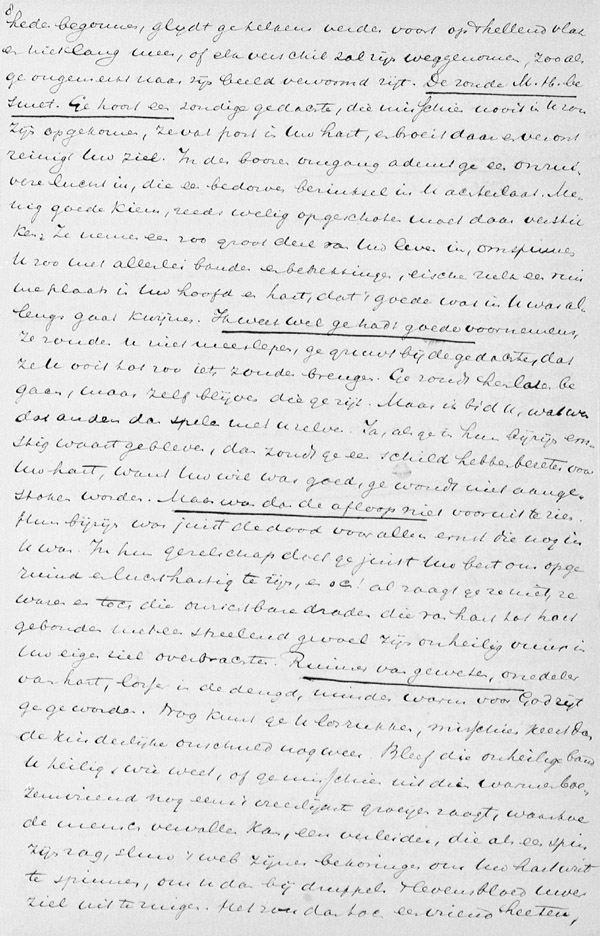 8
hede begonnen, glydt ge helaas verder voort op 't hellend vlak
en niet lang meer, of elk verschil zal zijn weggenomen, zoo als
ge ongemerkt naar zijn beeld vervormd zijt. De zonde M. H. be
smet. Ge hoort een zondige gedachte, die misschien nooit in U zou
zijn opgekomen, ze vat post in Uw hart, en broeit daar en veront
reinigt Uw ziel. In den boozen omgang ademt ge een onzui
vere lucht in, die een bedorven bezinksel in U achterlaat. Me
nig goede kiem, reeds welig opgeschoten moet daar verstik
ken; Ze nemen een zoo groot deel van Uw leven in, omspinnen
U zoo met allerlei banden en betrekkingen, eischen zulk een rui
me plaats in Uw hoofd en hart, dat 't goede wat in U was al
lengs gaat kwijnen. Ik weet wel ge hadt goede voornemens,
Ze zouden U niet meeslepen, ge gruwt bij de gedachte, dat
ze U ooit tot zoo iets zouden brengen. Ge zoudt hen laten be
gaan, maar zelf blijven die ge zijt. Maar ik bid U, wat was
dat anders dan spelen met U zelve. Ja, als ge in hun bijzijn ern
stig waart gebleven, dan zoudt ge een schild hebben bezeten voor
Uw hart, want Uw wil was goed, ge wondt niet aange
stoken worden. Maar was dan de afloop niet vooruit te zien.
Hun bijzijn was juist de dood voor allen ernst die nog in
U was. In hun gezelschap deedt ge juist Uw best om opge
ruimd en luchthartig te zijn, en och! al zaagt ge ze niet, ze
waren er toch die onzichtbare draden die van hart tot hart
gebonden met een streelend gevoel zijn onheilig vuur in
Uw eigen ziel overbrachten. Ruimer van geweten, onedeler
van hart, losser in de deugd, minder warm voor God zijt
ge geworden. Nog kunt ge U losrukken, misschien keert dan
de kinderlijke onschuld nog weer. Bleef die onheilige band
U heilig, wie weet, of ge misschien uit dien warmen boe
zemvriend nog eens 't vreeslijkst groeijen zaagt, waartoe
de mensch vervallen kan, een verleider, die als een spin
zijn rag, sluw 't web zijner bekoringen om Uw hart wist
te spinnen, om U dan bij druppels 't levensbloed Uwer
ziel uit te zuigen. Het zou dan toch een vriend heeten,